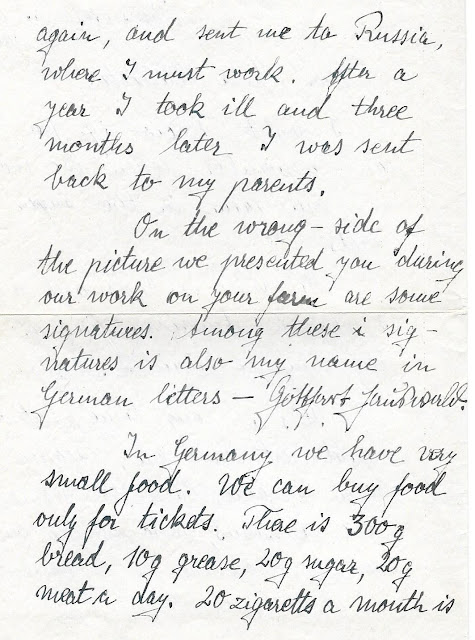 again, and sent me to Russia,
where I must work. After a
year I took ill and three
months later I was sent
back to my parents.
On the wrong-side of
the picture we presented you during
our work on your farm are some
signatures. Among these i sig-
natures is also my name in
German letters —
In Germany we have very
small food. We can buy food
only for tickets. There is 300g
bread, 10g grease, 20g sugar, 20g
meat a day. 20 zigaretts a month is